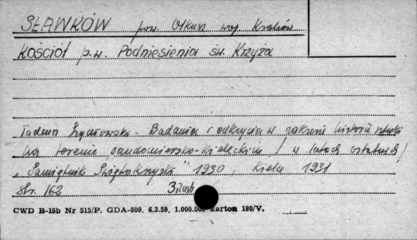 SŁAWKÓW pow. Olkusz woj. Kraków
KOŚCIÓŁ p.w. Podniesienia św. Krzyża
Tadeusz Szydłowski - Badania i odkrycia w zakresie historii sztuki
na terenie sandomiersko-kieleckim / w latach ostatnich /
"Pamiętnik Świętokrzyski" 1930, Kielce 1931
Str. 162 3 ilustr.
CWD B-15b Nr 515/P. GDA-809. 6.3.59. 1.000.000 karton 180/V.